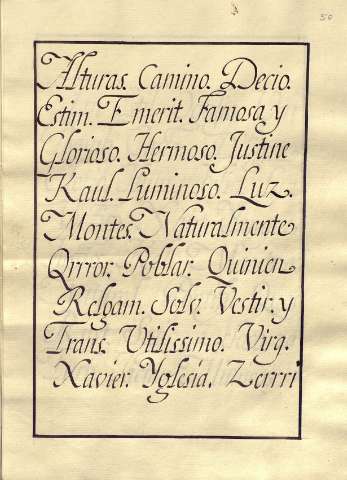 50
Alturas. Camino. Decio.
Estim. Emerit. Famosa y
Glorioso. Hermoso. Justine
Kaul. Luminoso. Luz.
Montes. Naturalmente
Qrror. Poblar. Quinien
Relgam. Solo. Vestir. y
Trans. Utilissimo. Virg.
Xavier. Yglesia. Zerrri